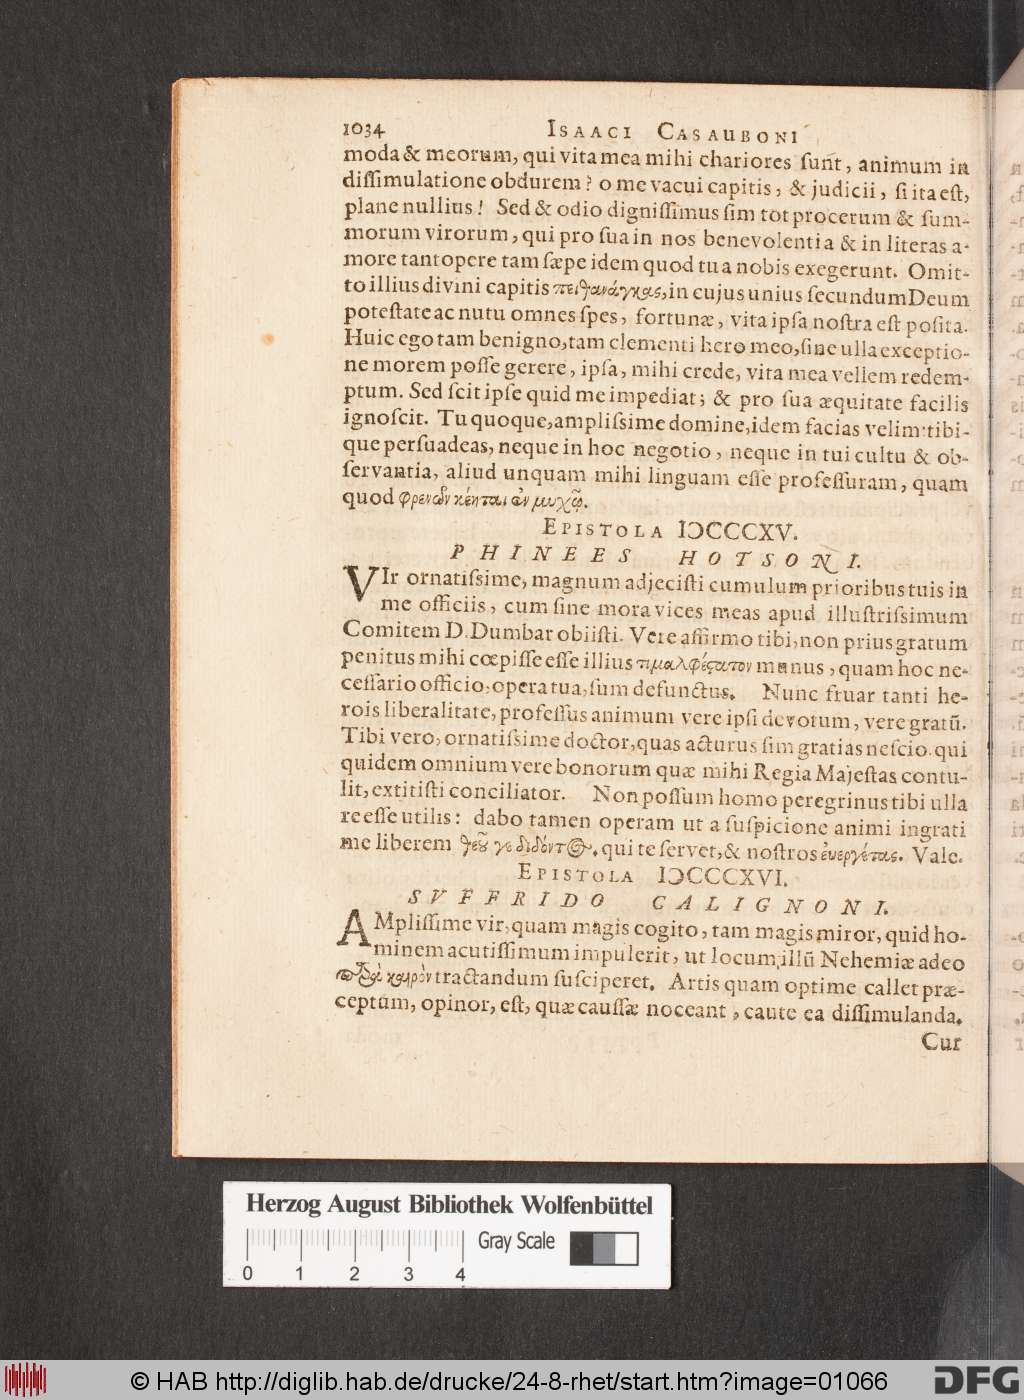 1034 ISAACI CASAUBONI
moda & meorum, qui vita mea mihi chariores sunt, animum in
dissimulatione obdurem? o me vacui capitis, & judicii, si ita est,
plane nullius! Sed & odio dignissimus sim tot procerum & sum-
morum virorum, qui pro sua in nos benevolentia & in literas a-
more tantopere tam sæpe idem quod tu a nobis exegerunt. Omit-
to illius divini capitis πειθανάγκας, in cujus unius secundum Deum
potestate ac nutu omnes spes, fortunæ, vita ipsa nostra est posita.
Huic ego tam benigno, tam clementi hero meo, sine ulla exceptio-
ne morem posse gerere, ipsa, mihi crede, vita mea vellem redem-
ptum. Sed scit ipse quid me impediat; & pro sua æquitate facilis
ignoscit. Tu quoque, amplissime domine, idem facias velim: tibi-
que persuadeas, neque in hoc negotio, neque in tui cultu & ob-
servantia, aliud unquam mihi linguam esse professuram, quam
quod φρενῶν κέηται ἐν μυχῷ.
EPISTOLA IↃCCCXV.
PHINEES HOTSONI.
VIr ornatissime, magnum adjecisti cumulum prioribus tuis in
me officiis, cum sine mora vices meas apud illustrissimum
Comitem D. Dumbar obiisti. Vere affirmo tibi, non prius gratum
penitus mihi cœpisse esse illius τιμαλφέςατον munus, quam hoc ne-
cessario officio, opera tua, sum defunctus. Nunc fruar tanti he-
rois liberalitate, professus animum vere ipsi devotum, vere gratũ.
Tibi vero, ornatissime doctor, quas acturus sim gratias nescio. qui
quidem omnium vere bonorum quæ mihi Regia Majestas contu-
lit, extitisti conciliator. Non possum homo peregrinus tibi ulla
re esse utilis: dabo tamen operam ut a suspicione animi ingrati
me liberem θεοῦ γε διδόντος. qui te servet, & nostros ἐυεργέτας. Vale.
EPISTOLA IↃCCCXVI.
SVFFRIDO CALIGNONI.
AMplissime vir, quam magis cogito, tam magis miror, quid ho-
minem acutissimum impulerit, ut locum illũ Nehemiæ adeo
παρὰ καιρὸν tractandum susciperet. Artis quam optime callet præ-
ceptum, opinor, est, quæ caussæ noceant, caute ea dissimulanda.
Cur
Herzog August Bibliothek Wolfenbüttel
Gray Scale
0 1 2 3 4
© HAB http://diglib.hab.de/drucke/24-8-rhet/start.htm?image=01066
DFG